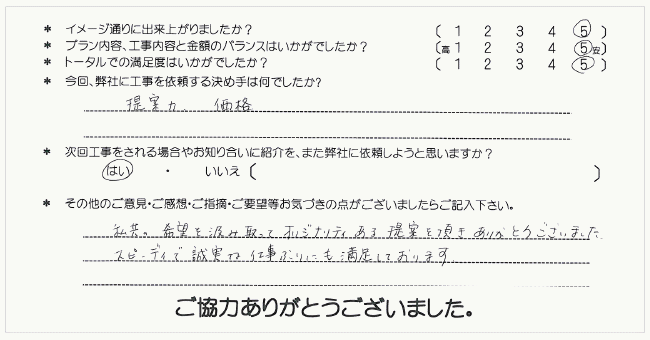 * イメージ通りに出来上がりましたか? 〔 1 2 3 4 5 〕
* プラン内容、工事内容と金額のバランスはいかがでしたか? 〔高1 2 3 4 5安〕
* トータルでの満足度はいかがでしたか? 〔 1 2 3 4 5 〕
* 今回、弊社に工事を依頼する決め手は何でしたか?
提案力 価格
* 次回工事をされる場合やお知り合いに紹介を、また弊社に依頼しようと思いますか?
はい ・ いいえ〔 〕
* その他のご意見・ご感想・ご指摘・ご要望等お気づきの点がございましたらご記入下さい。
私共の希望を汲み取って オリジナリティある 提案を頂き ありがとうございました
スピーディで 誠実な 仕事ぶりにも 満足しております
ご協力ありがとうございました。